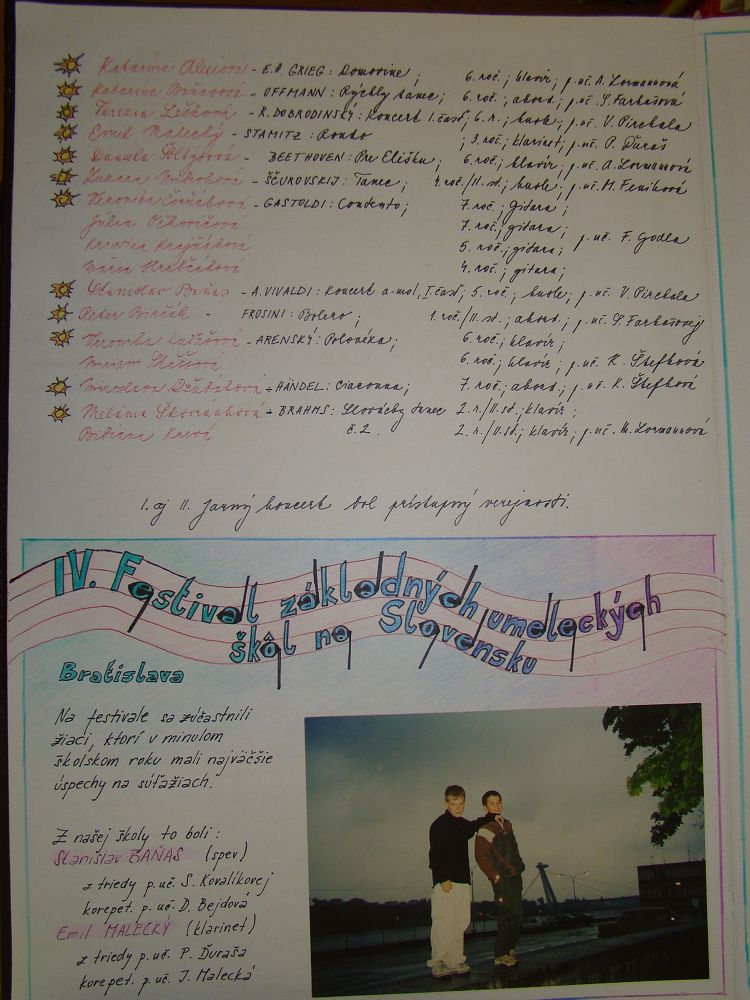 Katarína - E.H. GRIEG: Domovine; 6. roč.; klavír; p. uč. A. Lormannová
Katarína - OFFMANN: Rýchly tanec; 6. roč.; akord.; p. uč. S. Farkašová
Terézia - R. DOBRODINSKÝ: Koncert I. časť; 6. r.; husle; p. uč. V. Pirchala
Emil Malecký - STAMITZ: Rondo ; 3. roč.; klarinet; p. uč. P. Ďuraš
Daniela - BEETHOVEN: Pre Elišku; 6. roč.; klavír; p. uč. A. Lormannová
Zuzana - ŠČUROVSKIJ: Tanec; 4. roč./II. st.; husle; p. uč. M. Feniková
Veronika - GASTOLDI: Contento; 7. roč.; gitara;
Júlia 7. roč.; gitara;
Kristína 5. roč.; gitara; p. uč. F. Godla
Mária 4. roč.; gitara;
Stanislav Baňas - A. VIVALDI: Koncert a-mol, I. časť; 5. roč.; husle; p. uč. V. Pirchala
Peter - FROSINI: Bolero; 1. roč./II. st.; akord.; p. uč. S. Farkašovej
Veronika - ARENSKÝ: Polonéza; 6. roč.; klavír;
Miriam 6. roč.; klavír; p. uč. K. Štefková
Miroslava - HÄNDEL: Ciaconna; 7. roč.; akord.; p. uč. K. Štefková
Melánia - BRAHMS: Slovácky tanec 2. r./II. st.; klavír;
Bibiana č. 2. 2. r./II. st.; klavír; p. uč. M. Lormannová
I. aj II. Jarný koncert bol prístupný verejnosti.
IV. Festival základných umeleckých
škôl na Slovensku
Bratislava
Na festivale sa zúčastnili
žiaci, ktorí v minulom
školskom roku mali najväčšie
úspechy na súťažiach.
Z našej školy to boli:
Stanislav BAŇAS (spev)
z triedy p. uč. S. Kovalíkovej
korepet. p. uč. D. Bejdová
Emil MALECKÝ (klarinet)
z triedy p. uč. P. Ďuraša
korepet. p. uč. J. Malecká